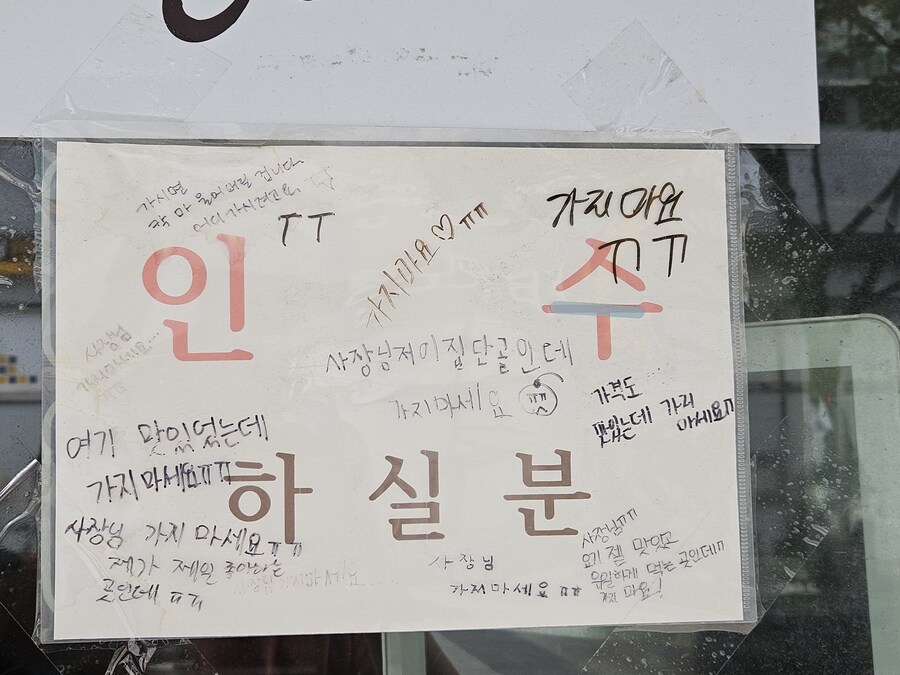 가시면
콱 마 울어버릴 겁니다
어디 가시려고요
ㅜㅜ
가지마요♡ㅠㅠ
가지 마요
ㅠㅠ
인수
사장님
사장님저이집단골인데
가지마세요 ㅠㅠ
가격도
맛있는데 가지
마세요ㅠ
여기 맛있었는데
가지마세요ㅠㅠ
하실분
사장님 가지 마세요ㅠㅠ
제가 제일 좋아하는
곳인데 ㅠㅠ
사장님가지마세요...
사장님
가지마세요 ㅠㅠ
사장님ㅠㅠ
여기 젤 맛있고
유일하게 먹는 곳인데ㅠ
가지 마요!